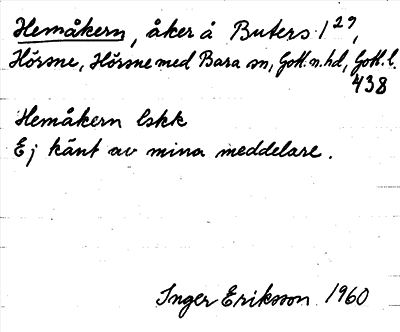 Hemåkern, åker å Buters 1²⁹,
Hörsne, Hörsne med Bara sn, Gotl. n. hd, Gotl. l.
438
Hemåkern lskk
Ej känt av mina meddelare.
Inger Eriksson 1960